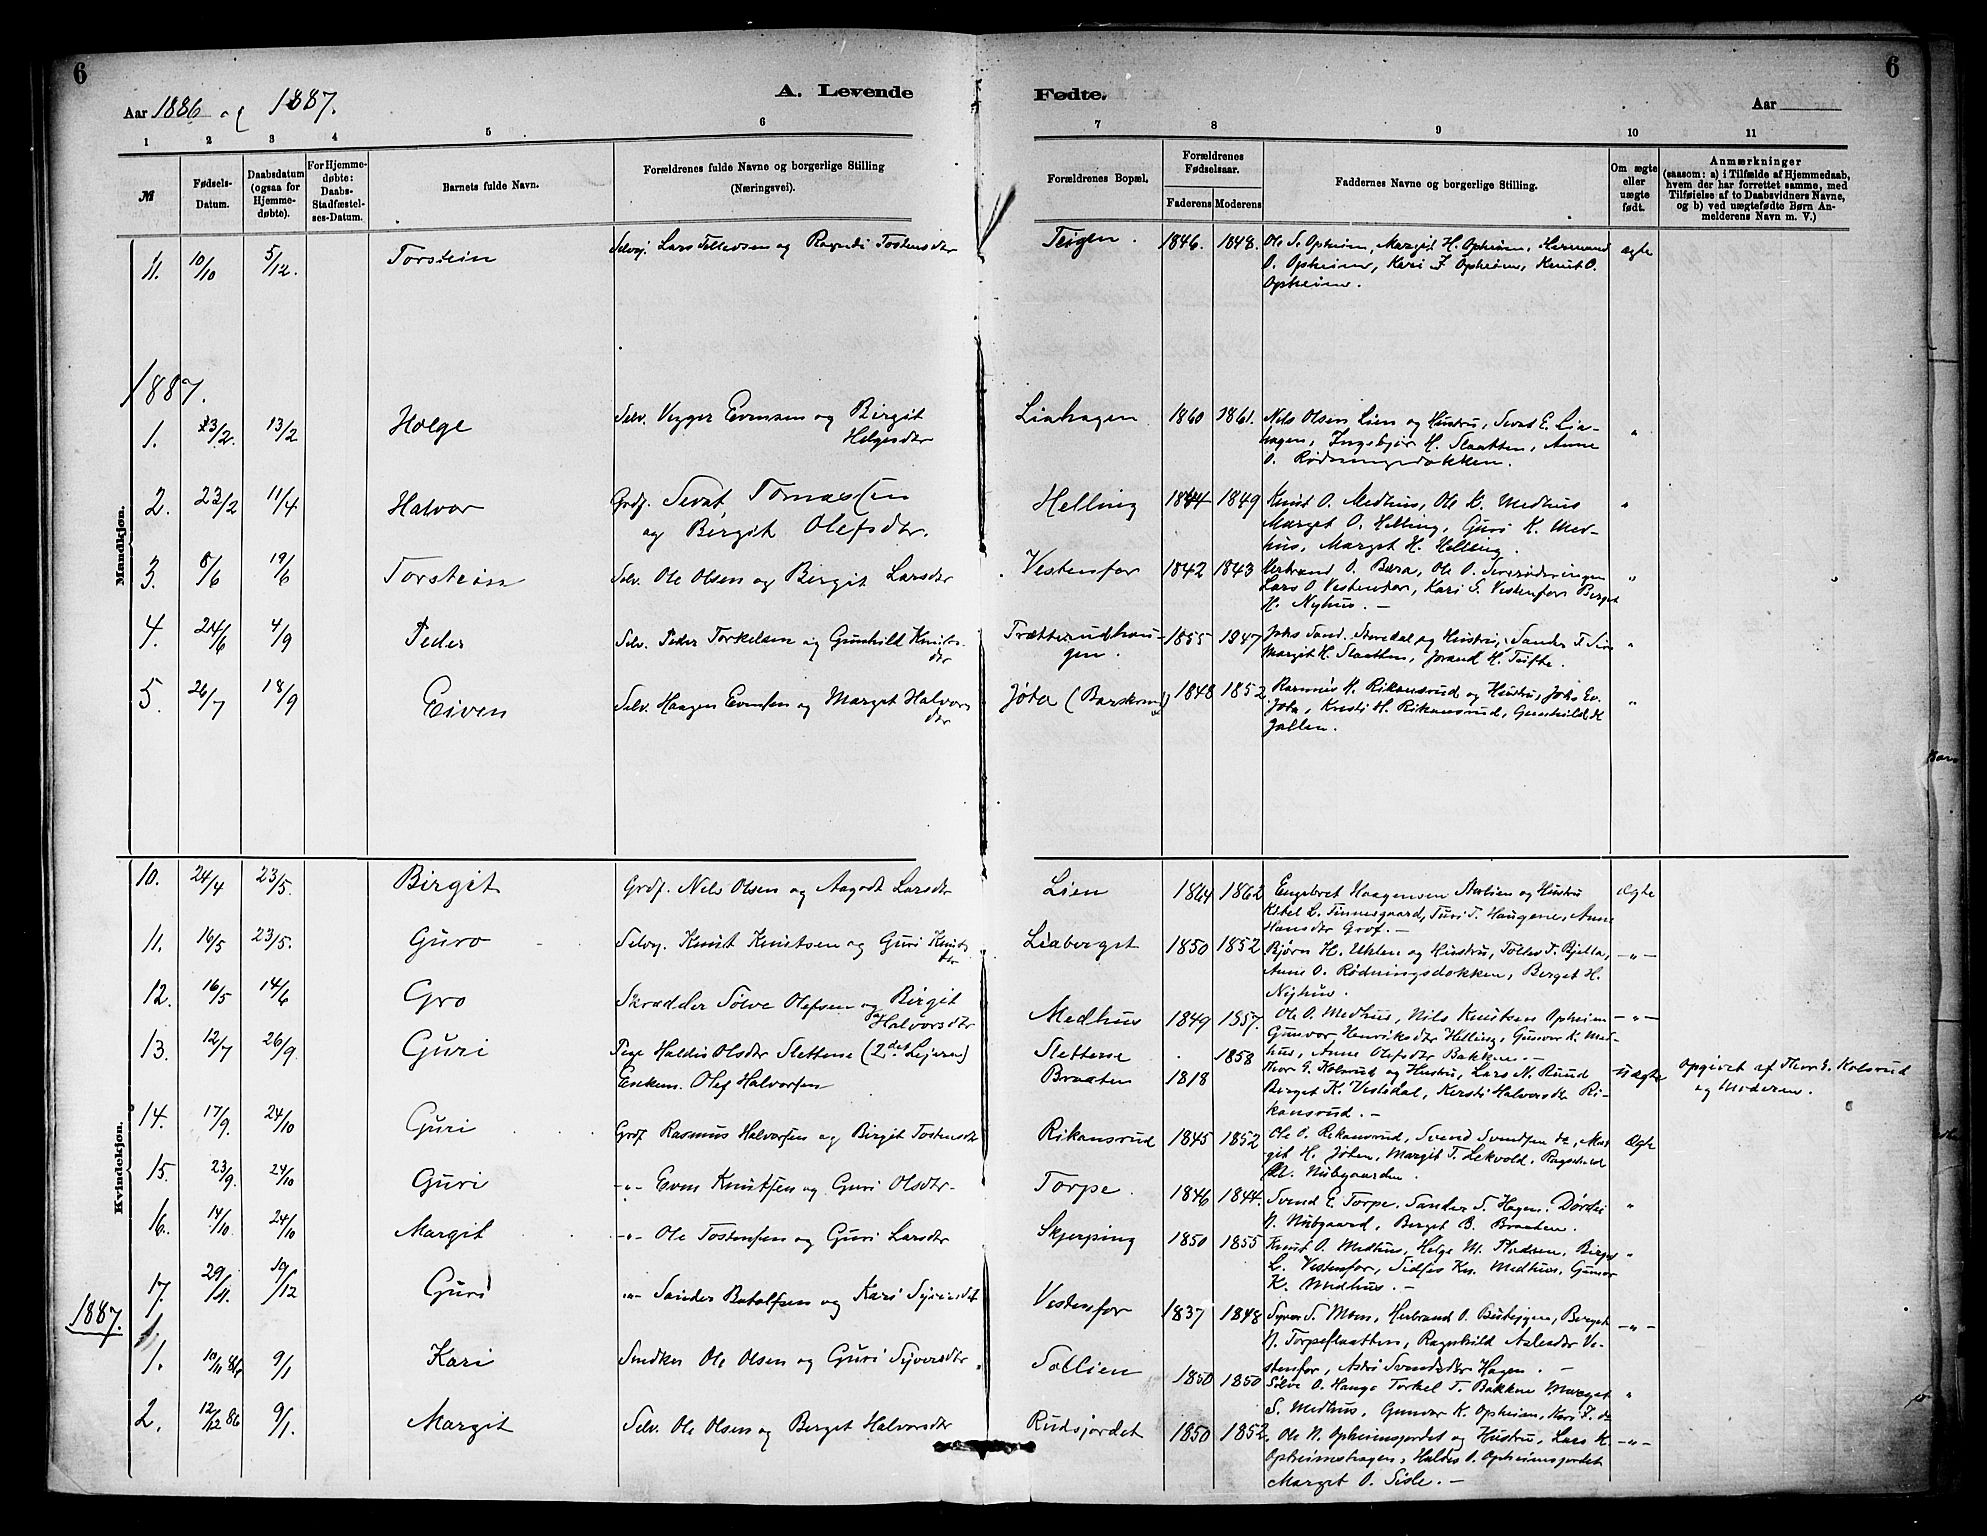 6
6
Aar 1886 og 1887.
A. Levende
Fødte.
Aar
1 2 3 4 5 6 7 8 9 10 11
№
Fødsels-
Datum.
Daabsdatum
(ogsaa for
Hjemme-
døbte).
For Hjemme-
døbte:
Daabs-
Stadfæstel-
ses-Datum.
Barnets fulde Navn.
Forældrenes fulde Navne og borgerlige Stilling
(Næringsvei).
Forældrenes Bopæl.
Forældrenes
Fødselsaar.
Faderens Moderens
Faddernes Navne og borgerlige Stilling.
Om ægte
eller
uægte
født.
Anmærkninger
(saasom: a) i Tilfælde af Hjemmedaab,
hvem der har forrettet samme, med
Tilføielse af to Daabsvidners Navne,
og b) ved uægtefødte Børn An-
melderens Navn m. V.)
Mandkjøn.
11. 10/10 5/12. Torstein Selvej. Lars Tollevsen og Ragndi Tostensdtr Teigen. 1846. 1848. Ole S. Opheim, Margit H. Opheim, Hermand ægte
O. Opheim, Kari J Opheim, Knut O.
Opheim.
1887.
1. 13/2. 13/2 Helge Selv. Vegger Evensen og Birgit Liahagen 1860 1861. Nils Olsen Lien og Hustru, Sevat E. Lia- "
Helgesdtr
hagen, Ingebjør H. Slaatten, Anne
O. Rødningsdokken.
2. 23/2 11/4 Halvor Grdf. Sevat Tomassen Helling 1844 1849 Knut O. Medhus, Ole K. Medhus "
og Birgit Olefsdtr.
Marget O. Helling, Guri K. Med-
hus, Marget H. Helling.
3. 8/6 19/6 Torstein Selv. Ole Olsen og Birgit Larsdtr Vestenfor 1842 1843 Herbrand O. Bæra, Ole O. "
Lars O. Vestenfor, Kari S. Vestenfor Berget
H. Nyhus. —
4. 24/6 4/9 Peder Selv. Peder Torkelsen og Gunhild Knuts- Trætterudhau- 1855 1847 Johs Sand. Storedal og Hustru, Sander T. "
dtr
gen.
Margit H. Slaatten, Jorand H. Tufte.
5. 26/7 18/9 Eiven Selv. Haagen Evensen og Marget Halvors Jøta 1848 1852 Rasmus H. Rikansrud og Hustru, Johs Ev. "
dtr
Jøta, Kristi H. Rikansrud, Gunhild H
Jallen.
Kvindekjøn.
10. 24/4 23/5. Birgit Grdf. Nels Olsen og Aagodt Larsdtr Lien 1864 1862 Engebret Haagensen Aalien og Hustru Ægte
Kittel L. Finnesgaard, Turi T. Haugene, Anne
Hansdtr Grøf. —
11. 16/5 23/5. Guro Selvej. Knut Knutsen og Guri Knuts Liaberget 1850 1852 Bjørn H. Uklen og Hustru, Tollev T. Bjella, —"—
dtr
Anne O. Rødningsdokken, Berget H.
Nyhus.
12. 16/5 14/6 Gro Skrædder Sølve Olefsen og Birgit Medhus 1849 1857. Ole O. Medhus, Nils Knutsen Opheim —"—
Halvorsdtr
Gunvor Henriksdtr Helling, Gunvor K. Med-
hus, Anne Olefsdtr Bakken. —
13. 12/7 26/9. Guri Pige Haldis Olsdtr Slettene (2det Leiermaal) Slettene 1858 Thor G. Kolsrud og Hustru, Lars N. Ruud Uægte Opgivet af Thor G. Kolsrud
Enkem. Olef Halvorsen Braaten 1818 Berget K. Vestedal, Kersti Halvorsdtr Ri-
og Moderen.
kansrud. —
14. 17/9. 24/10 Guri Grdf Rasmus Halvorsen og Birgit Tostensdtr Rikansrud 1845 1852 Ole O. Rikansrud, Svend Svendsen do, Mar- Ægte
git H. Jøten, Margit T. Lekvold, Ragnhild
Nubgaarden.
15. 23/9. 24/10 Guri —"— Even Knutsen og Guri Olsdtr Torpe. 1846 1844. Svend E. Torpe, Sander S. Hagen, Dordei "
N. Nubgaard, Berget B. Braaten.
16. 14/10. 24/10 Margit —"— Ole Tostensen og Guri Larsdtr Skjerping 1850 1855 Knut O. Medhus, Helge M. Birget "
L. Vestenfor, Sidsel Kn. Medhus, Gunvor
K. Medhus. —
17. 29/11. 19/12 Guri —"— Sander Botolfsen og Kari Syversdtr Vestenfor 1837 1848 Syver S. Moen, Herbrand O. Berget —"—
N. Torpeslaatten, Ragnhild Asledtr Ve-
stenfor, Astri Svendsdtr Hagen. —
1887.
1. 10/11 86 9/1 Kari Snedker Ole Olsen og Guri Syversdtr. Sollien 1850 1850 Sølve O. Hauge Torkel T. Bakken Marget "
S. Medhus, Gunvor K. Opheim, Kari T. do
2. 12/12 86 9/1. Margit Selv. Ole Olsen og Berget Halvorsdtr Rudsjordet 1850 1852. Ole N. Opheimsjordet og Hustru, Lars K. —"—
Opheimshagen, Haldis O. Opheimsjordet
Marget O. Sisle. —